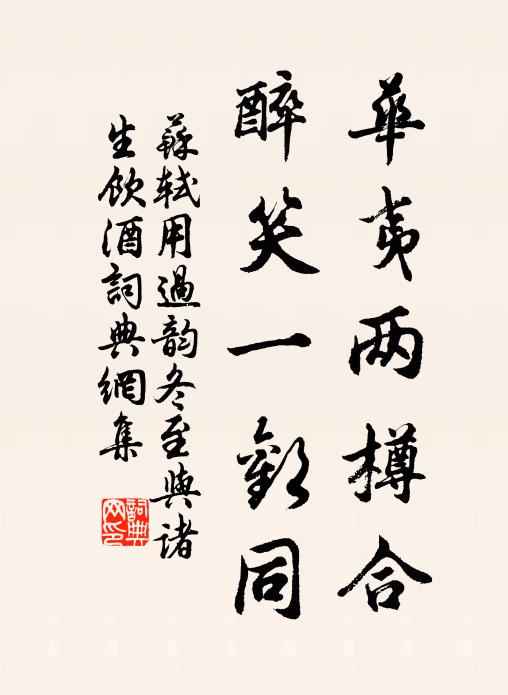 華夷两樽合
醉笑一歡同
蘇轼用過韵冬至與諸
生飲酒詞典網集
詞典
网印